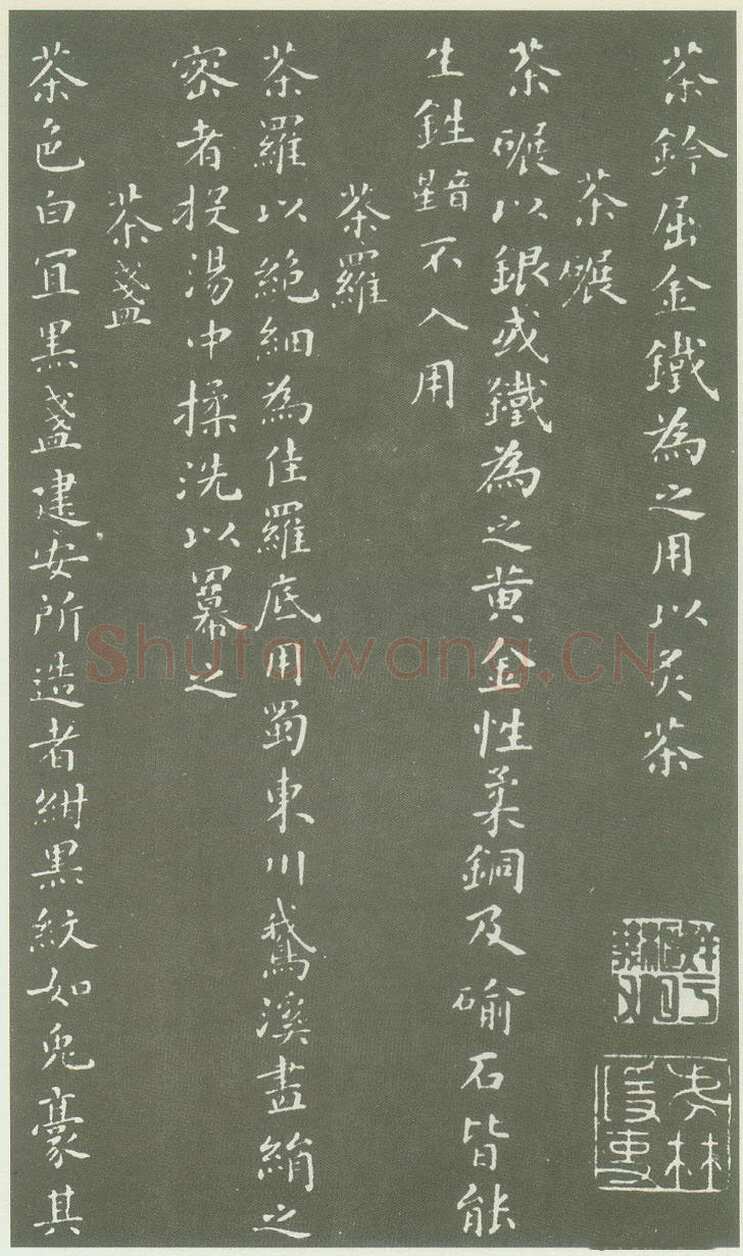 茶鈐屈金鐵為之用以炙茶
茶碾
茶碾以銀或鐵為之黄金性柔銅及碖石皆能
生鉎䵴不入用
茶羅
茶羅以絶細為佳羅底用蜀東川鵞溪畫絹之
密者投湯中揉洗以羃之
茶盞
茶色白宜黒盞建安所造者紺黒紋如兎豪其
Shufawang.CN